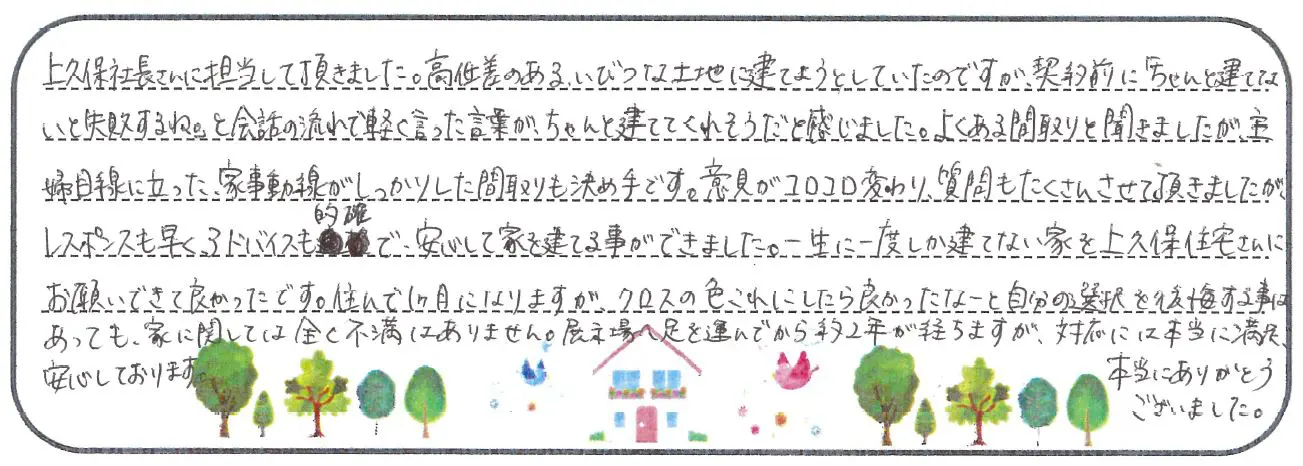 上久保社長さんに担当して頂きました。高低差のある、いびつな土地に建てようとしていたのですが、契約前に「ちゃんと建てな
いと失敗するね。」と会話の流れで軽く言った言葉が、ちゃんと建ててくれそうだと感じました。よくある間取りと聞きましたが、主
婦目線に立った、家事動線がしっかりした間取りも決め手です。意見がコロコロ変わり、質問もたくさんさせて頂きましたが、
レスポンスも早く、アドバイスも的確で、安心して家を建てる事ができました。一生に一度しか建てない家を上久保住宅さんに
お願いできて良かったです。住んで1ヶ月になりますが、クロスの色これにしたら良かったなーと自分の選択を後悔する事は
あっても、家に関しては全く不満はありません。展示場へ足を運んでから約2年が経ちますが、対応には本当に満足、
安心しております。
本当にありがとう
ございました。